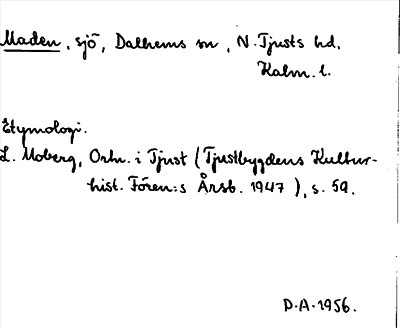 Maden, sjö, Dalhems sn, N. Tjusts hd.
Kalm. l.
Etymologi.
L. Moberg, Ortn. i Tjust (Tjustbygdens Kultur-
hist. Fören:s Årsb. 1947), s. 59.
D.A. 1956.